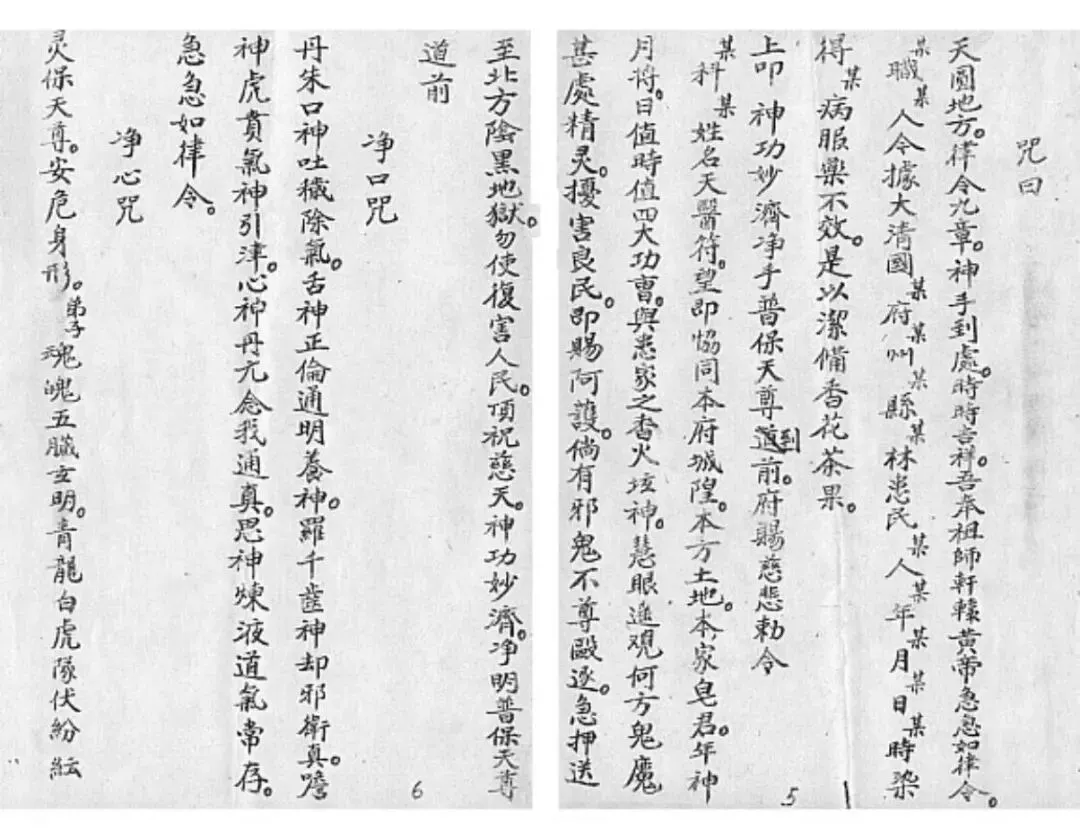 咒曰
天圓地方。律令九章。神手到處。時時吉祥。吾奉祖師軒轅黃帝急急如律令。
某職某人令據大清國某府某州某縣某林患民某人某年某月某日某時染
得某病服藥不效。是以潔備香花茶果。
上叩神功妙濟净手普保天尊到道前。府賜慈悲勅令
某科某姓名天醫符。望即恊同本府城隍。本方土地。本家皂君。年神
月将。日值時值四大功曹。與患家之香火垓神。慧眼進观何方鬼魔
甚處精灵。擾害良民。即賜阿護。倘有邪鬼不尊毆逐。急押送
5
至北方陰黑地獄。勿使復害人民。頂祝慈天。神功妙濟。净明普保天尊
道前
净口咒
丹朱口神吐穢除氣。舌神正倫通明養神。羅千齒神却邪衛真。喉
神虎賁氣神引津。心神丹元念我通真。思神煉液道氣常存。
急急如律令。
净心咒
灵保天尊。安危身形。弟子魂魄五臟玄明。青龍白虎隊伏紛紜
6